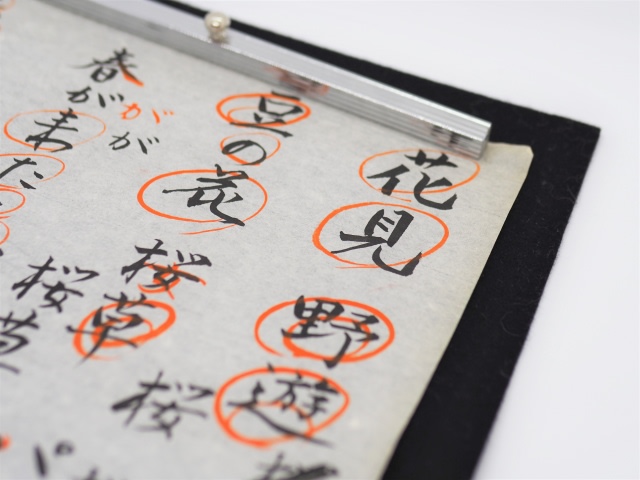 花見
野遊
豆の花
桜草
桜
春が
また
がが
桜草